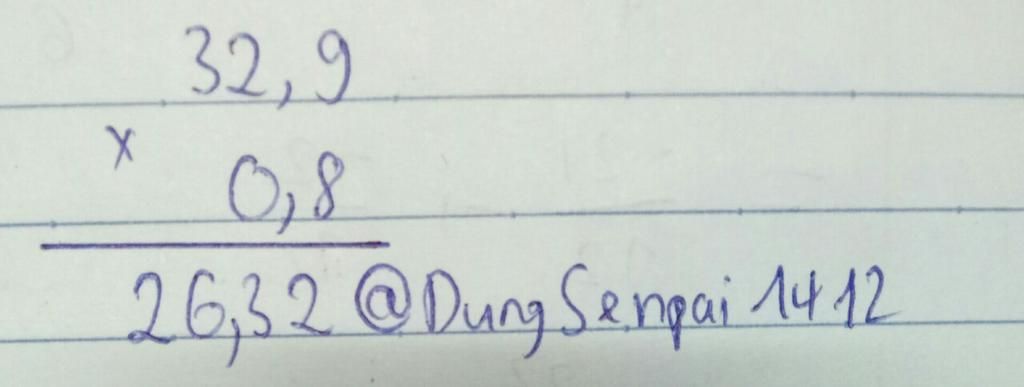 32,9
x
0,8
26,32 @DungSenpai1412